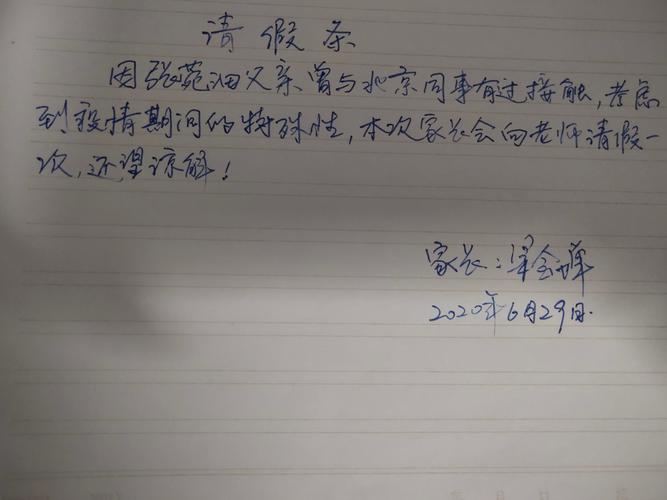 请假条
因张苑涵父亲曾与北京同事有过接触,考虑
到疫情期间的特殊性,本次家长会向老师请假一
次,还望谅解!
家长:梁会
2020年6月29日.